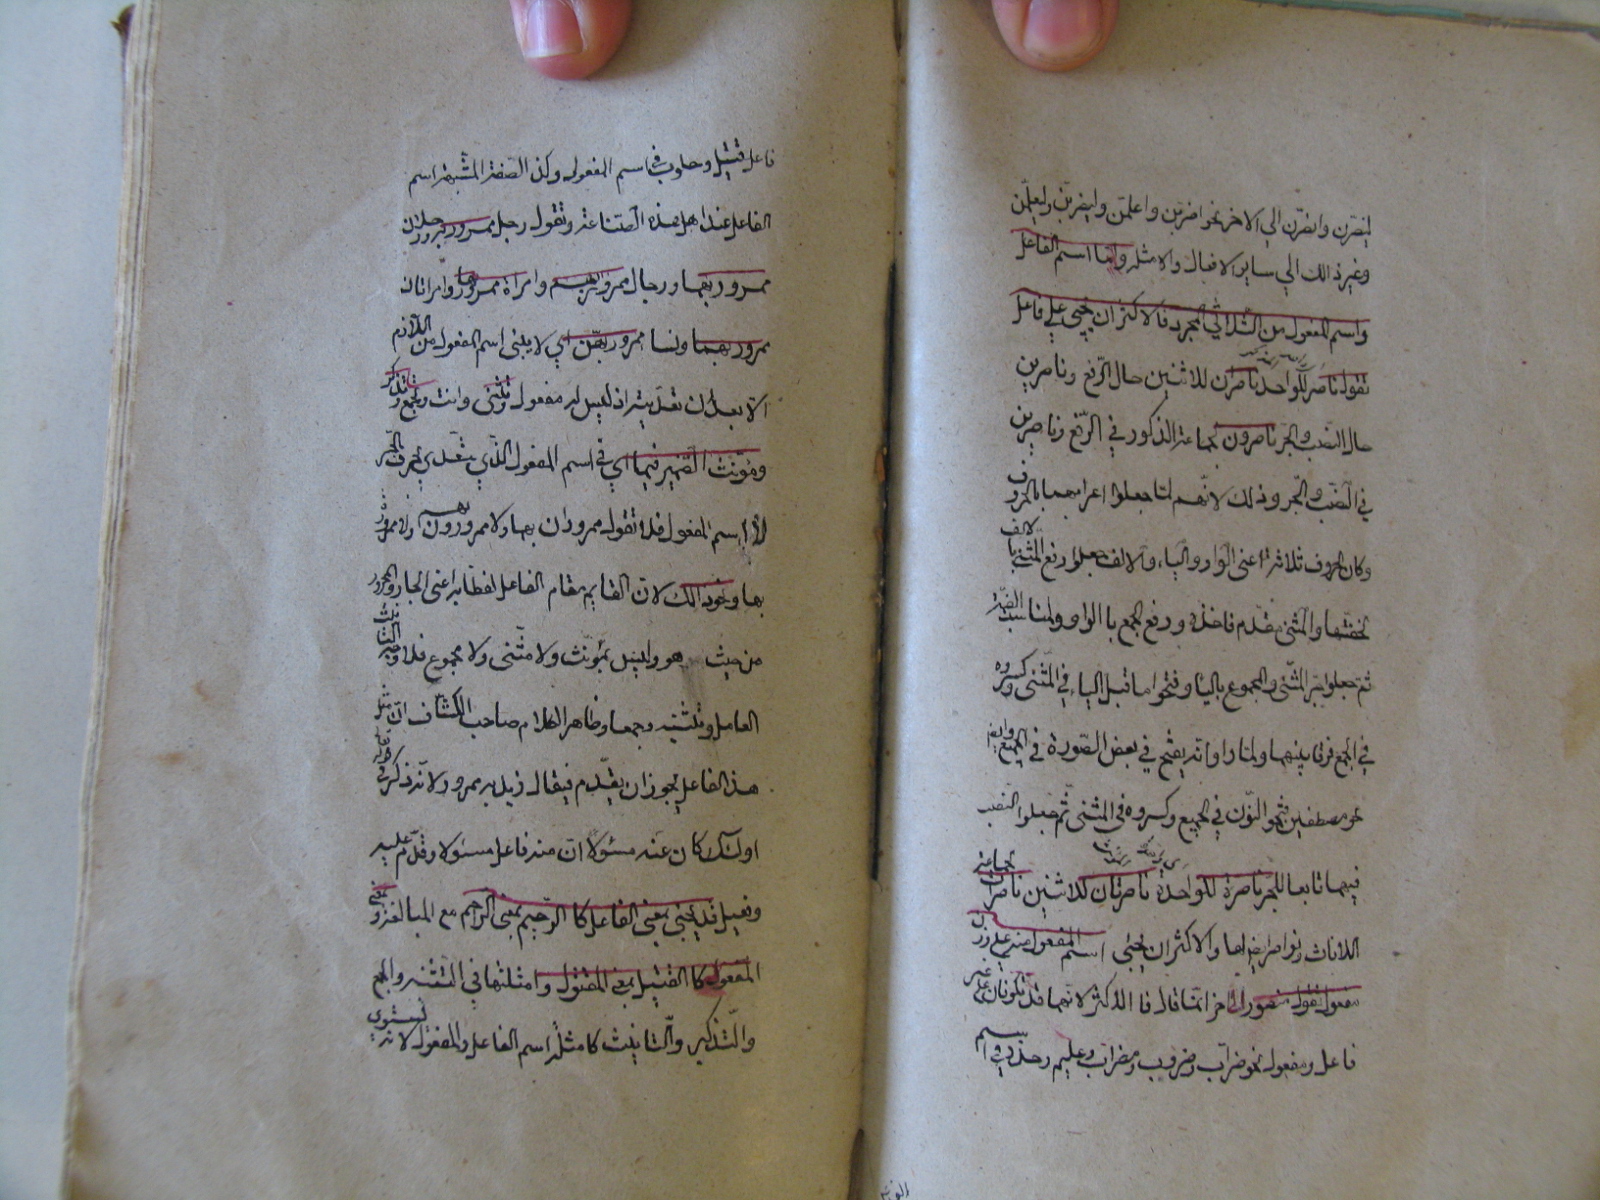 لينصرن وانصرن الي الاخر نحو اضربن واعلمن وليضربن وليعلمن
وغير ذالك الي ساير الافعال والامثلة واما اسم الفاعل
واسم المفعول من الثلاثي المجرد فالاكثر ان يجيء علي فاعل
تقول ناصر للواحد ناصران للاثنين حال الرفع وناصرين
حال النصب والجر ناصرون لجماعة الذكور في الرفع وناصرين
في النصب والجر وذلك لانهم لما جعلوا اعرابهما بالحروف
وكان الحروف ثلاثة اعني الواو والياء والالف جعلوا رفع المثني بالالف
لخفتها والمثني مقدم فاخذه ورفع الجمع با الواو ولمناسبت الضمة
ثم جعلوا جر المثني والمجموع بالياء وفتحوا ما قبل الياء في المثني وكسروه
في الجمع فرقا بينهما ولما راوا انه يفتح في بعض الصورة في الجمع وايضا
نحو مصطفين فتحو النون في الجميع وكسروه في المثني ثم جعلوا النصب
فيهما تابعا للجر ناصرة للواحدة ناصرتان للاثنين ناصرات جماعة
اللاناث ونواصر ايضا لها والاكثر ان يجيء اسم المفعول منه علي وزن
مفعول تقول منصور الي اخر انما قال فا الاكثر لانهما قد تكونان علي غير
فاعل ومفعول نحو ضراب وضروب ومضراب وعليم وحذر في اسم
فاعل قتيل وحلوب في اسم المفعول وكذ الصفة المشبهة اسم
الفاعل عند اهل هذه الصناعة وتقول رجل ممرور به ورجلان
ممرور بهما ورجال ممرور بهم وامراة ممرور بها وامراتان
ممرور بهما ونسا ممرور بهن اي لا يبني اسم المفعول من اللازم
الا بعد ان تعديته اذ ليس له مفعول وتثني وانت وتجمع وتذكر
ومؤنث الضمير فيما اي في اسم المفعول الذي يتعدي بحرف الجر
لا اسم المفعول فلا تقول ممروران بهما ولا ممرورون بهم ولا ممرورة
بها ونحو ذالك لان القايم مقام الفاعل لفظا به اعني الجار والمجرور
من حيث هو وليس بمونث ولا مثني ولا مجموع فلا وجه لتانيث
العامل وتثنيته وجمعه وظاهر الكلام صاحب الكشاف ان مثل
هذ الفاعل يجوز ان يقدم فيقال زيد به ممرور لانه ذكر في قوله
اولئك كان عنه مسئولا ان عنه فاعل مسئولا وقدم عليه
وفعيل قد يجيء بمعني الفاعل كا الرحيم بمعني الراحم مع المبالغة وبمعني
المفعول كا القتيل بمعني المقتول وامثلتها في التثنيه والجمع
والتذكير والتانيث كامثلة اسم الفاعل والمفعول لانه يستوي